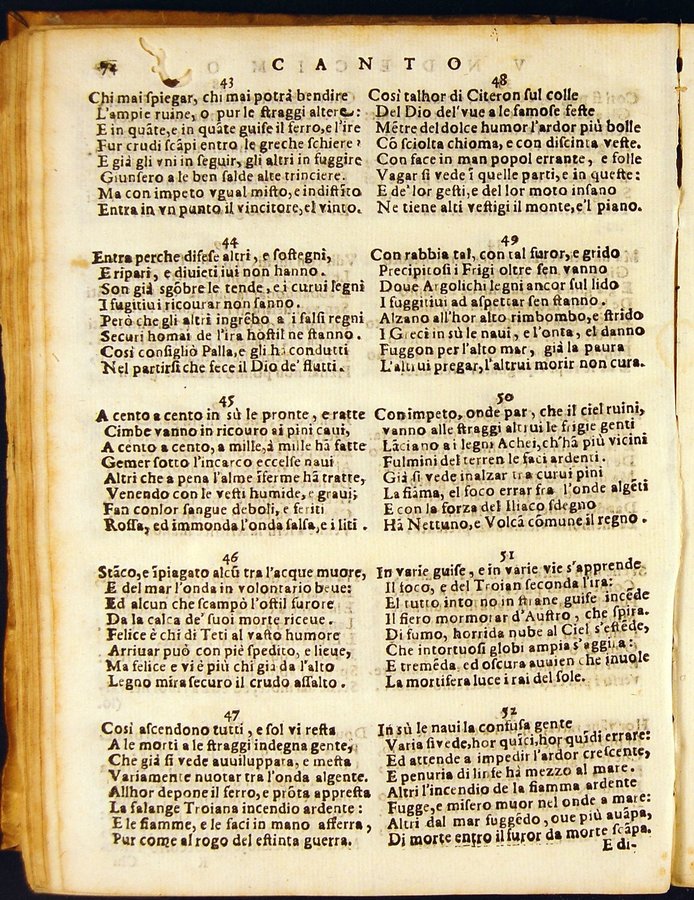 74
CANTO
43
Chi mai ſpiegar, chi mai potrà bendire
L'ampie ruine, o pur le ſtraggi altere:
E in quāte, e in quāte guiſe il ferro, e l'ire
Fur crudi ſcāpi entro le greche ſchiere,
E già gli vni in ſeguir, gli altri in fuggire
Giunſero a le ben ſalde alte trinciere.
Ma con impeto vgual miſto, e indiſtīto
Entra in vn punto il vincitore, el vinto.
44
Entra perche difeſe altri, e ſoſtegni,
E ripari, e diuieti iui non hanno.
Son già sgōbre le tende, e i curui legni
I fugitiui ricourar non ſanno.
Però che gli altri ingrēbo a i falſi regni
Securi homai de l'ira hoſtil ne ſtanno.
Così conſigliò Palla, e gli hà condutti
Nel partirſi che fece il Dio de' flutti.
45
A cento a cento in sù le pronte, e ratte
Cimbe vanno in ricouro ai pini caui,
A cento a cento, a mille, à mille hā fatte
Gemer ſotto l'incarco eccelſe naui
Altri che a pena l'alme īferme hā tratte,
Venendo con le veſti humide, e graui;
Fan conlor ſangue deboli, e feriti
Roſſa, ed immonda l'onda ſalſa, e i liti.
46
Stāco, e īpiagato alcū tra l'acque muore,
E del mar l'onda in volontario beue:
Ed alcun che ſcampò l'oſtil furore
Da la calca de' ſuoi morte riceue.
Felice è chi di Teti al vaſto humore
Arriuar può con piè ſpedito, e lieue,
Ma felice e vi è più chi già da l'alto
Legno mira ſecuro il crudo aſſalto.
47
Così aſcendono tutti, e ſol vi reſta
A le morti a le ſtraggi indegna gente,
Che già ſi vede auuiluppara, e meſta
Variamente nuotar tra l'onda algente.
Allhor depone il ferro, e prōta appreſta
La falange Troiana incendio ardente:
E le fiamme, e le faci in mano afferra,
Pur come al rogo del eſtinta guerra.
48
Così talhor di Citeron ſul colle
Del Dio del'vue a le famoſe feſte
Mētre del dolce humor l'ardor più bolle
Cō ſciolta chioma, e con diſcinta veſte.
Con face in man popol errante, e folle
Vagar ſi vede ī quelle parti, e in queſte:
E de'lor geſti, e del lor moto inſano
Ne tiene alti veſtigi il monte, e'l piano.
49
Con rabbia tal, con tal furor, e grido
Precipitoſi i Frigi oltre ſen vanno
Doue Argolichi legni ancor ſul lido
I fuggitiui ad aſpettar ſen ſtanno.
Alzano all'hor alto rimbombo, e ſtrido
I Greci in sù le naui, e l'onta, el danno
Fuggon per l'alto mar, già la paura
L'altrui pregar, l'altrui morir non cura.
50
Con impeto, onde par, che il ciel ruini,
vanno alle ſtraggi altrui le frigie genti
Lāciano a i legni Achei, ch'hā più vicini
Fulmini del terren le faci ardenti.
Già ſi vede inalzar tra curui pini
La fiāma, el foco errar fra l'onde algēti
E con la forza del Iliaco ſdegno
Hà Nettuno, e Volcā cōmune il regno.
51
In varie guiſe, e in varie vie s'apprende
Il foco, e del Troian ſeconda l'ira:
El tutto into no in ſtrane guiſe incēde
Il fiero mormorar d'Auſtro, che ſpira.
Di fumo, horrida nube al Ciel s'eſtēde,
Che intortuoſi globi ampia s'aggira:
E tremēda, ed oſcura auuien che inuole
La mortifera luce i rai del ſole.
52
In sù le naui la confuſa gente
Varia ſi vede, hor quīci, hor quīdi errare:
Ed attende a impedir l'ardor creſcente,
E penuria di linfe hà mezzo al mare.
Altri l'incendio de la fiamma ardente
Fugge, e miſero muor nel onde a mare:
Altri dal mar fuggēdo, oue più auāpa,
Di morte entro il furor da morte ſcāpa.
E di-